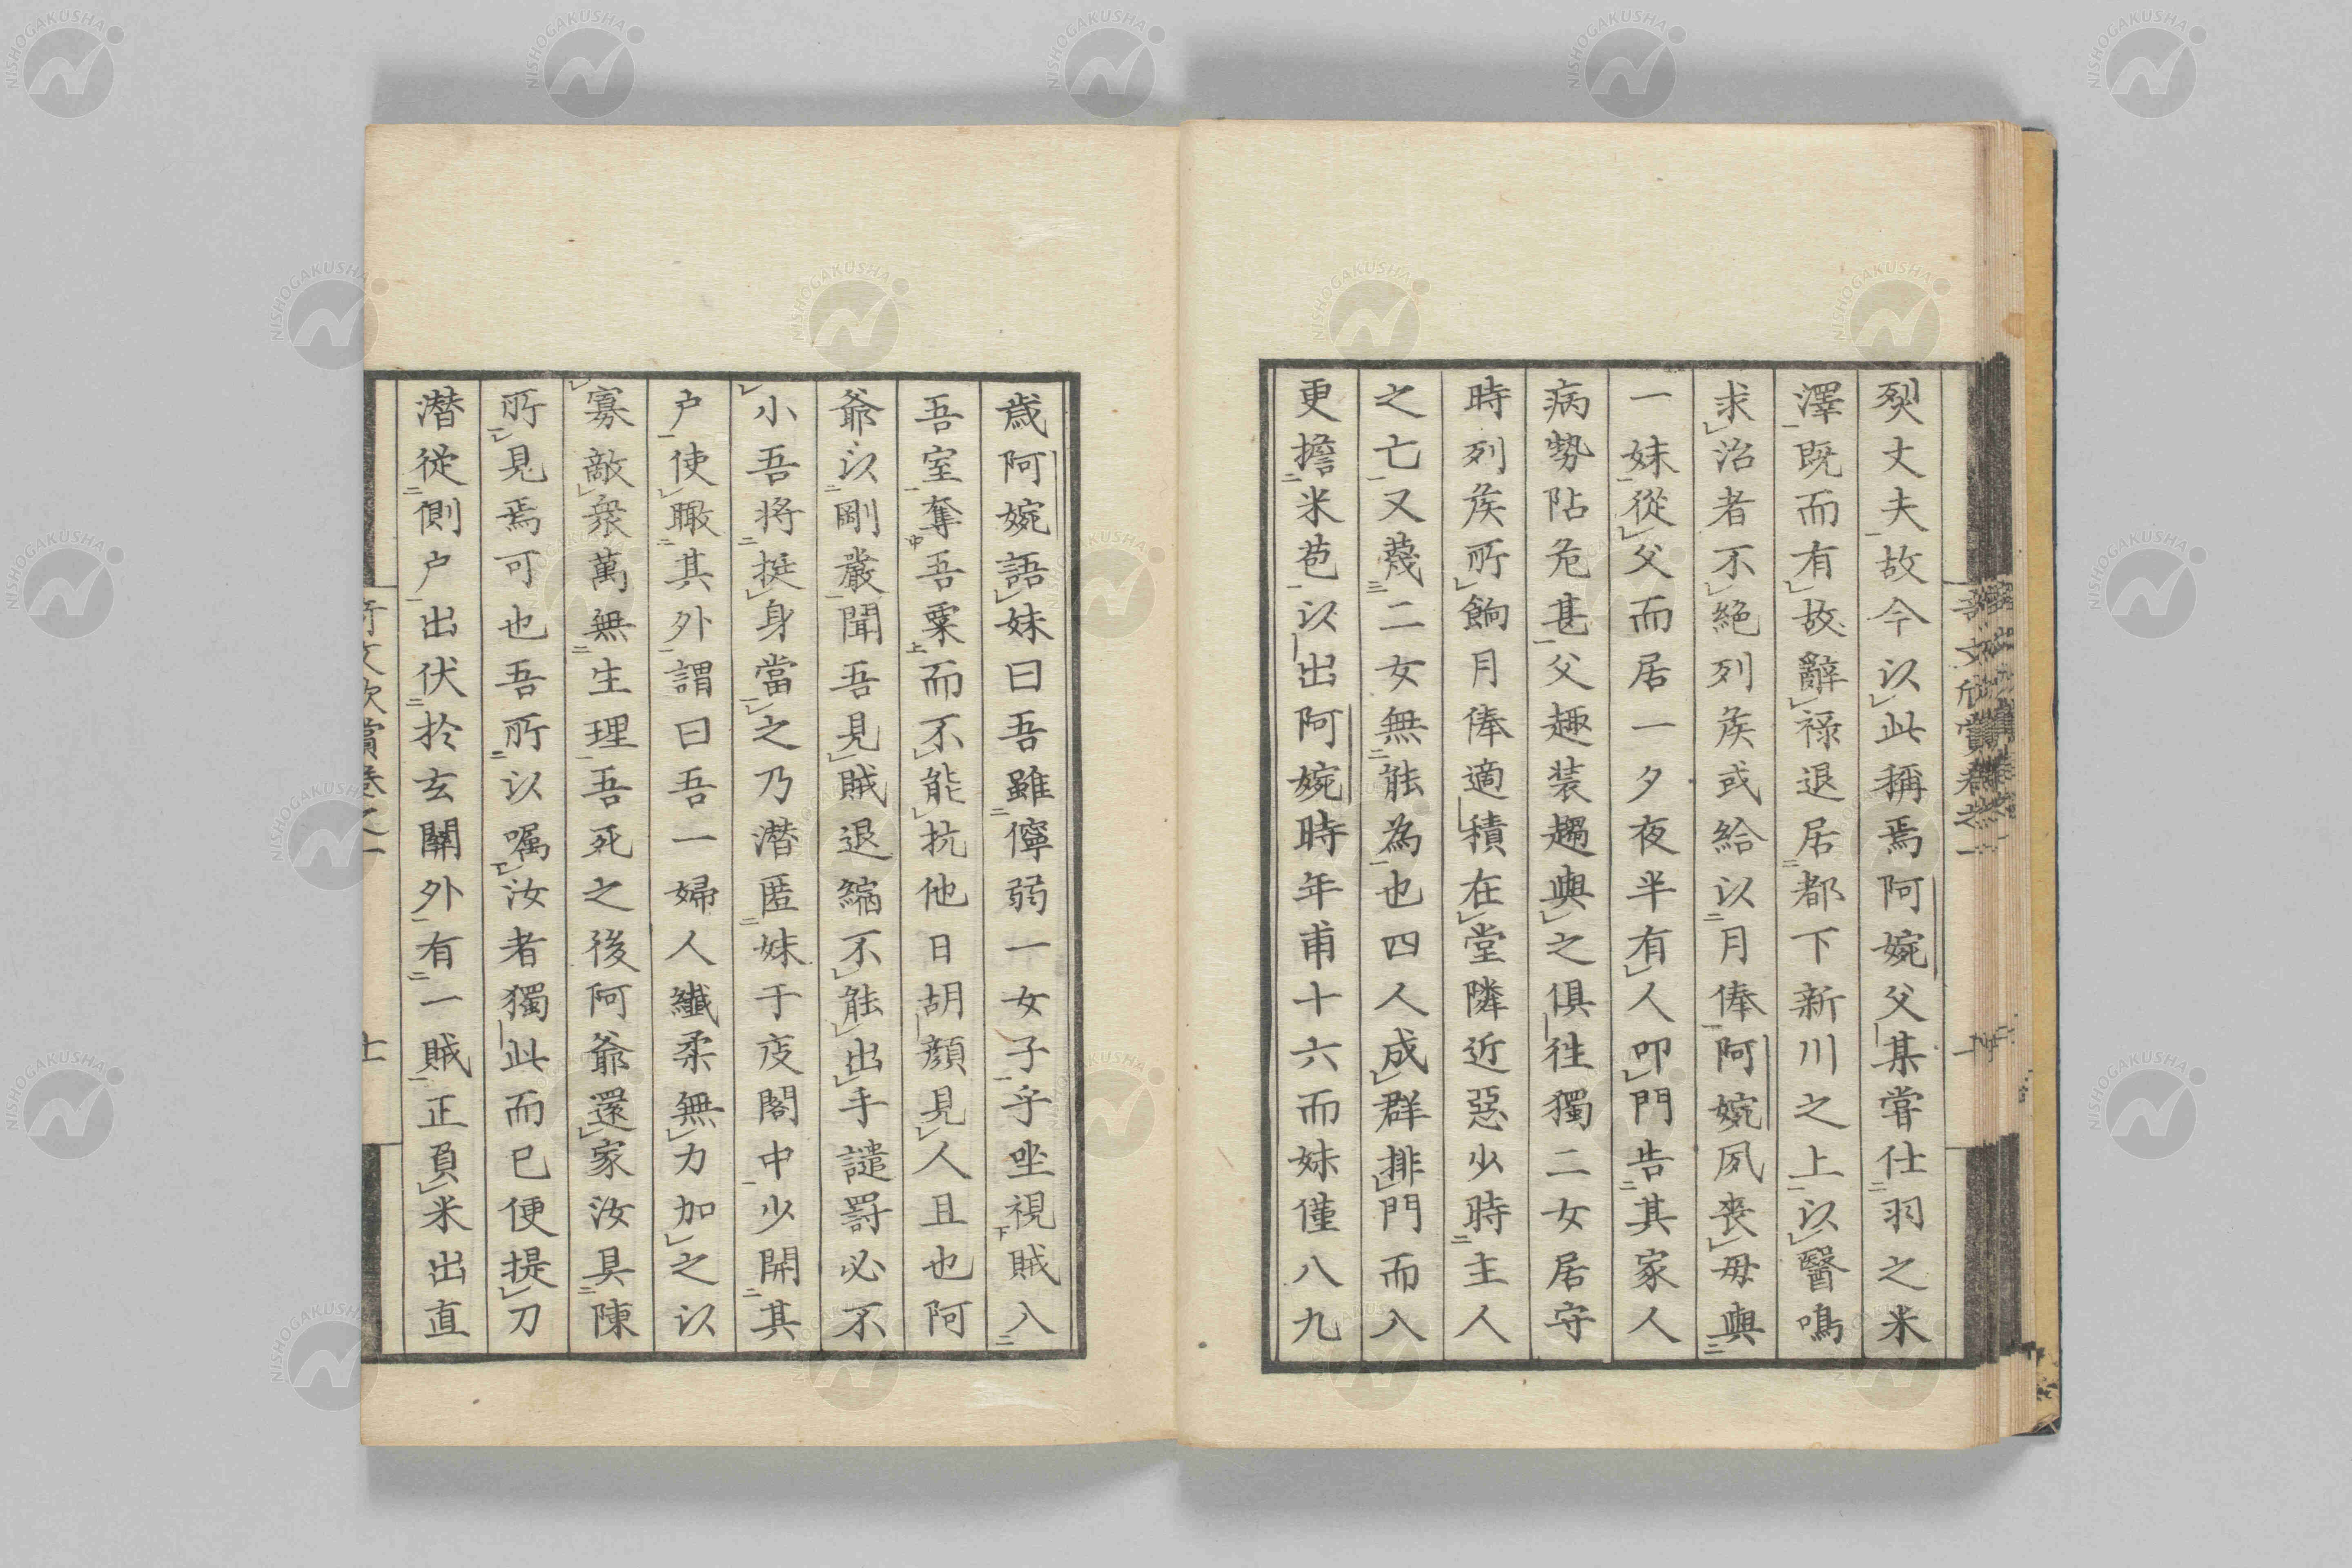 烈丈夫故今以此稱焉阿婉父某嘗仕羽之米
澤既而有故辭祿退居都下新川之上以醫鳴
求治者不絕列矦或給以月俸阿婉夙喪母與
一妹從父而居一夕夜半有人叩門告其家人
病勢阽危甚父趣装趨與之俱徃獨二女居守
時列矦所餉月俸適積在堂隣近惡少時主人
之亡又蔑二女無能為也四人成群排門而入
更擔米苞以出阿婉時年甫十六而妹僅八九
歳阿婉語妹曰吾雖儜弱一女子乎坐視賊入
吾室奪吾粟而不能抗他日胡顔見人且也阿
爺以剛嚴聞吾見賊退縮不能出手譴罸必不
小吾将挺身當之乃潜匿妹于庋閣中少開其
户使瞰其外謂曰吾一婦人纖柔無力加之以
寡敵衆萬無生理吾死之後阿爺還家汝具陳
所見焉可也吾所以嘱汝者獨此而已便提刀
潜從側户出伏於玄關外有一賊正負米出直
奇文欣賞卷之一
NISHOGAKUSHA